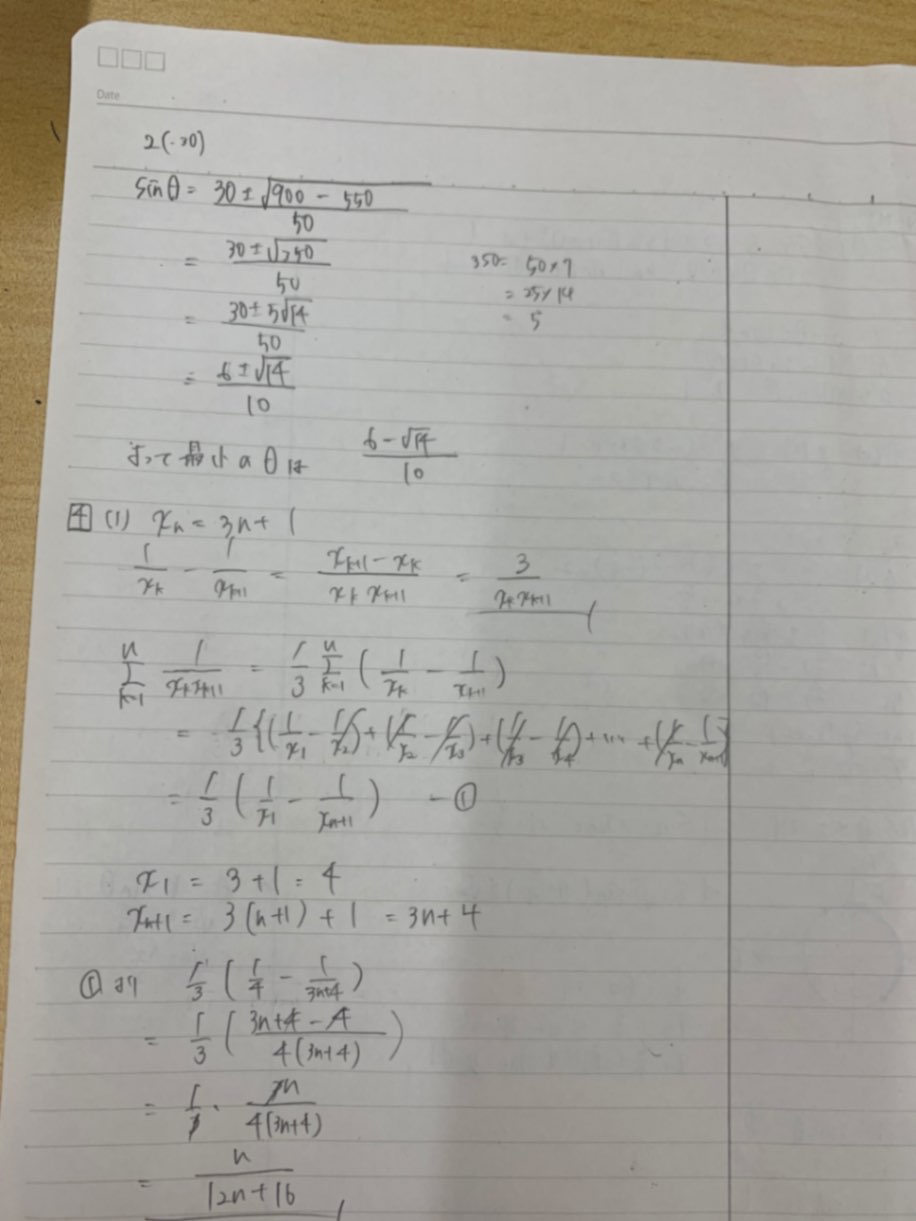 Date
2(-30)
sinθ = 30±√(900 - 550) / 50
= 30±√250 / 50
350 = 50×7
= 25×14
= 5
= 30±5√14 / 50
= 6±√14 / 10
よって最小のθは 6-√14 / 10
4 (1) xn = 3n+1
1/xk - 1/xk+1 = xk+1 - xk / xk xk+1 = 3 / xk xk+1
nΣk=1 1/xkxk+1 = 1/3 nΣk=1 (1/xk - 1/xk+1)
= 1/3 {(1/x1 - 1/x2) + (1/x2 - 1/x3) + (1/x3 - 1/x4) + … + (1/xn - 1/xn+1)}
= 1/3 (1/x1 - 1/xn+1) -①
x1 = 3+1 = 4
xn+1 = 3(n+1)+1 = 3n+4
①より 1/3 (1/4 - 1/3n+4)
= 1/3 (3n+4-4 / 4(3n+4))
= 1/3 · 3n / 4(3n+4)
= n / 12n+16